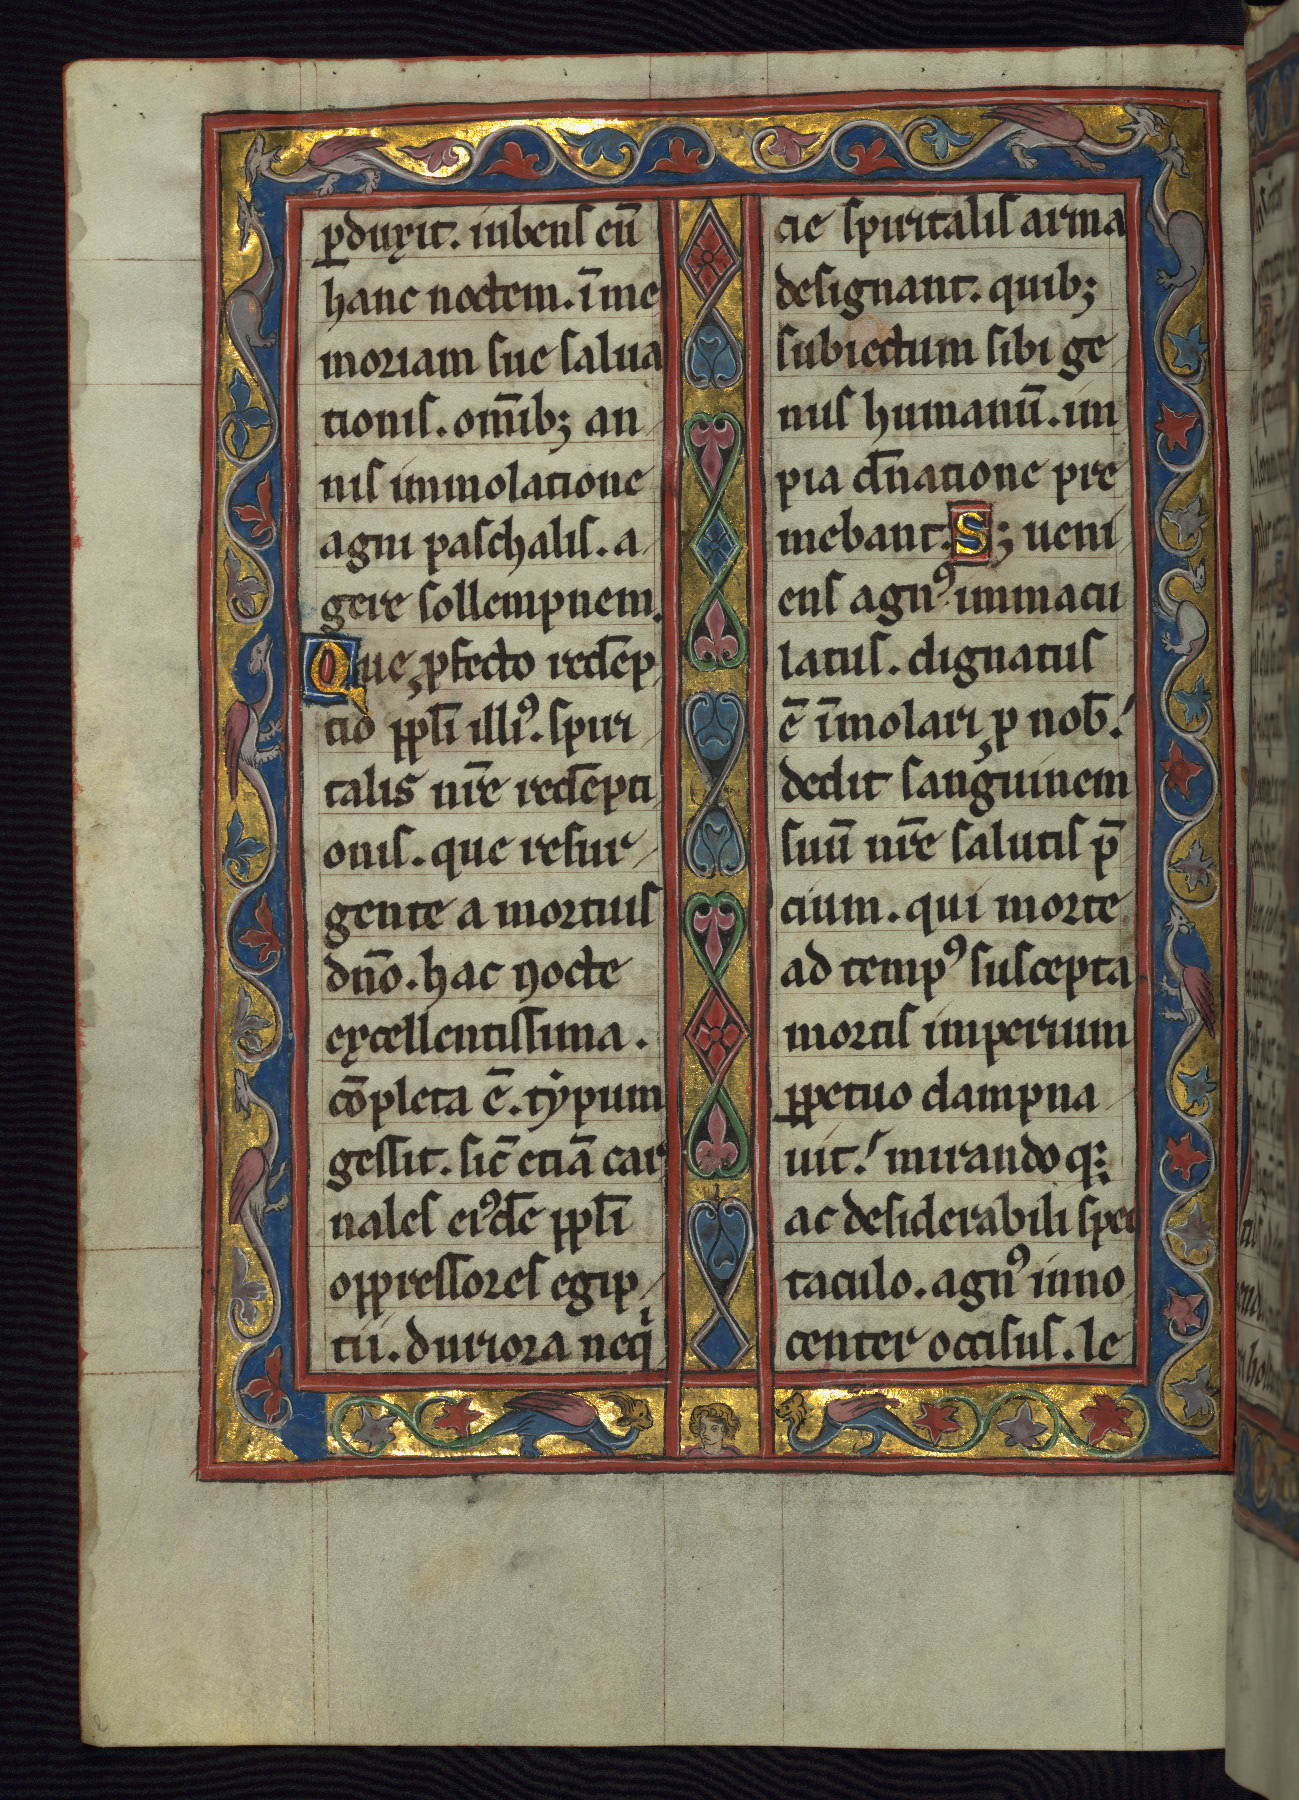 ꝑduxit. iubens eū
hanc noctem. ī me
moriam sue salua
tionis. om̄ib; an
nis immolatione
agni paschalis. a
gere sollempnem.
Que ꝓfecto redēp
tio ppl̄i illi᷒. spiri
talis nr̄e redēpti
onis. que resur
gente a mortuis
dn̄o. hac nocte
excellentissima.
cōpleta ē. typum
gessit. sic̄ etiā car
nales ei᷒dē ppl̄i
oppressores egip
tii. duriora neq̇
cie spiritalis arma
designant. quib;
subiectum sibi ge
nus humanū. im
pia dn̄atione pre
mebant. S; ueni
ens agn᷒ immacu
latus. dignatus
ē īmolari ꝓ nob̄.
dedit sanguinem
suū nr̄e salutis p̄
cium. qui morte
ad temp᷒ suscepta
mortis imperium
ꝑpetuo dampna
uit. mirando q:
ac desiderabili spec
taculo. agn᷒ inno
center occisus. le